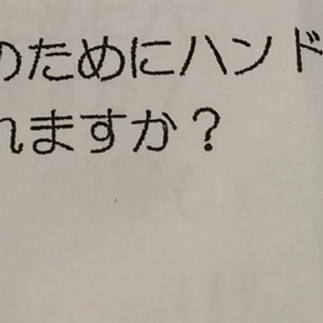 のためにハンド
れますか？